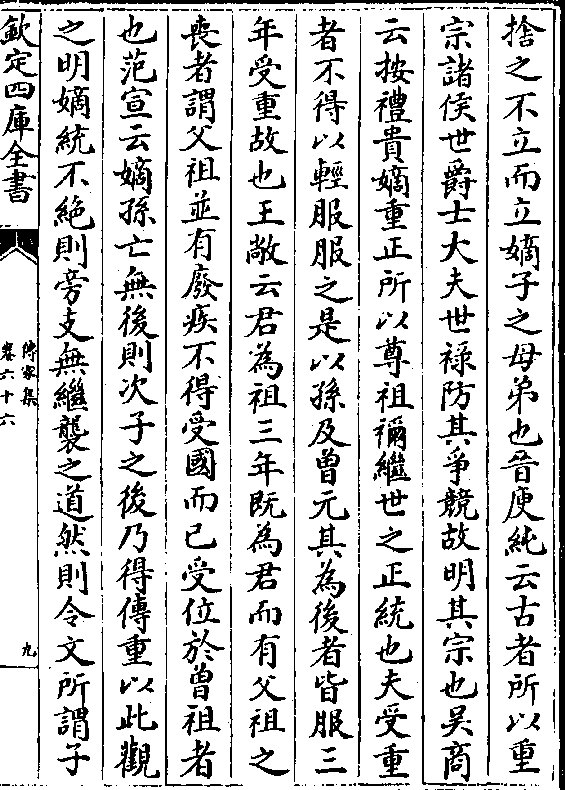 捨之不立而立嫡子之母弟也晉庾純云古者所以重
宗諸侯世爵士大夫世祿防其爭競故明其宗也吳商
云按禮貴嫡重正所以尊祖禰繼世之正統也夫受重
者不得以輕服服之是以孫及曾元其為後者皆服三
年受重故也王敞云君為祖三年既為君而有父祖之
喪者謂父祖並有廢疾不得受國而已受位於曾祖者
也范宣云嫡孫亡無後則次子之後乃得傳重以此觀
之明嫡統不絶則旁支無繼襲之道然則令文所謂子
欽定四庫全書
傳家集
卷六十六
九